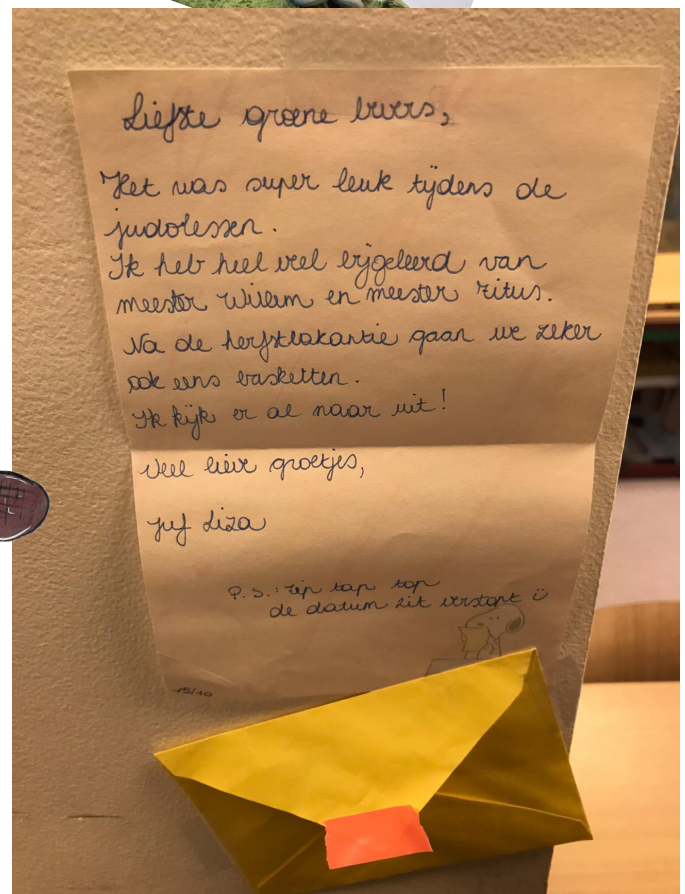 Liefste groene bevers,
Het was super leuk tijdens de
judolessen.
Ik heb heel veel bijgeleerd van
meester Willem en meester Titus.
Na de herfstvakantie gaan we zeker
ook eens basketten.
Ik kijk er al naar uit!
Veel lieve groetjes,
juf Liza
P.S.: tip tap top
de datum zit verstopt ü
15/10